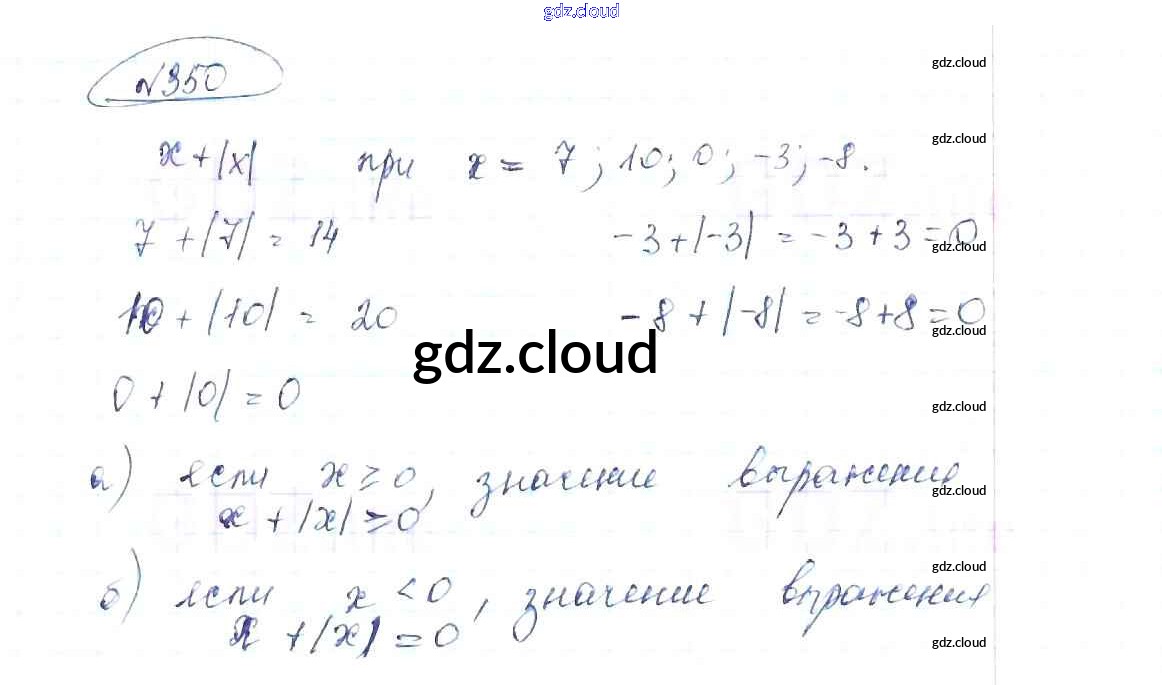 gdz.cloud
№350
gdz.cloud
gdz.cloud
x + |x| при x = 7; 10; 0; -3; -8.
7 + |7| = 14
-3 + |-3| = -3 + 3 = 0
gdz.cloud
10 + |10| = 20
-8 + |-8| = -8 + 8 = 0
gdz.cloud
gdz.cloud
0 + |0| = 0
gdz.cloud
а) если x ≥ 0, значение выражения
gdz.cloud
x + |x| ≥ 0
gdz.cloud
б) если x < 0, значение выражения
x + |x| = 0
gdz.cloud